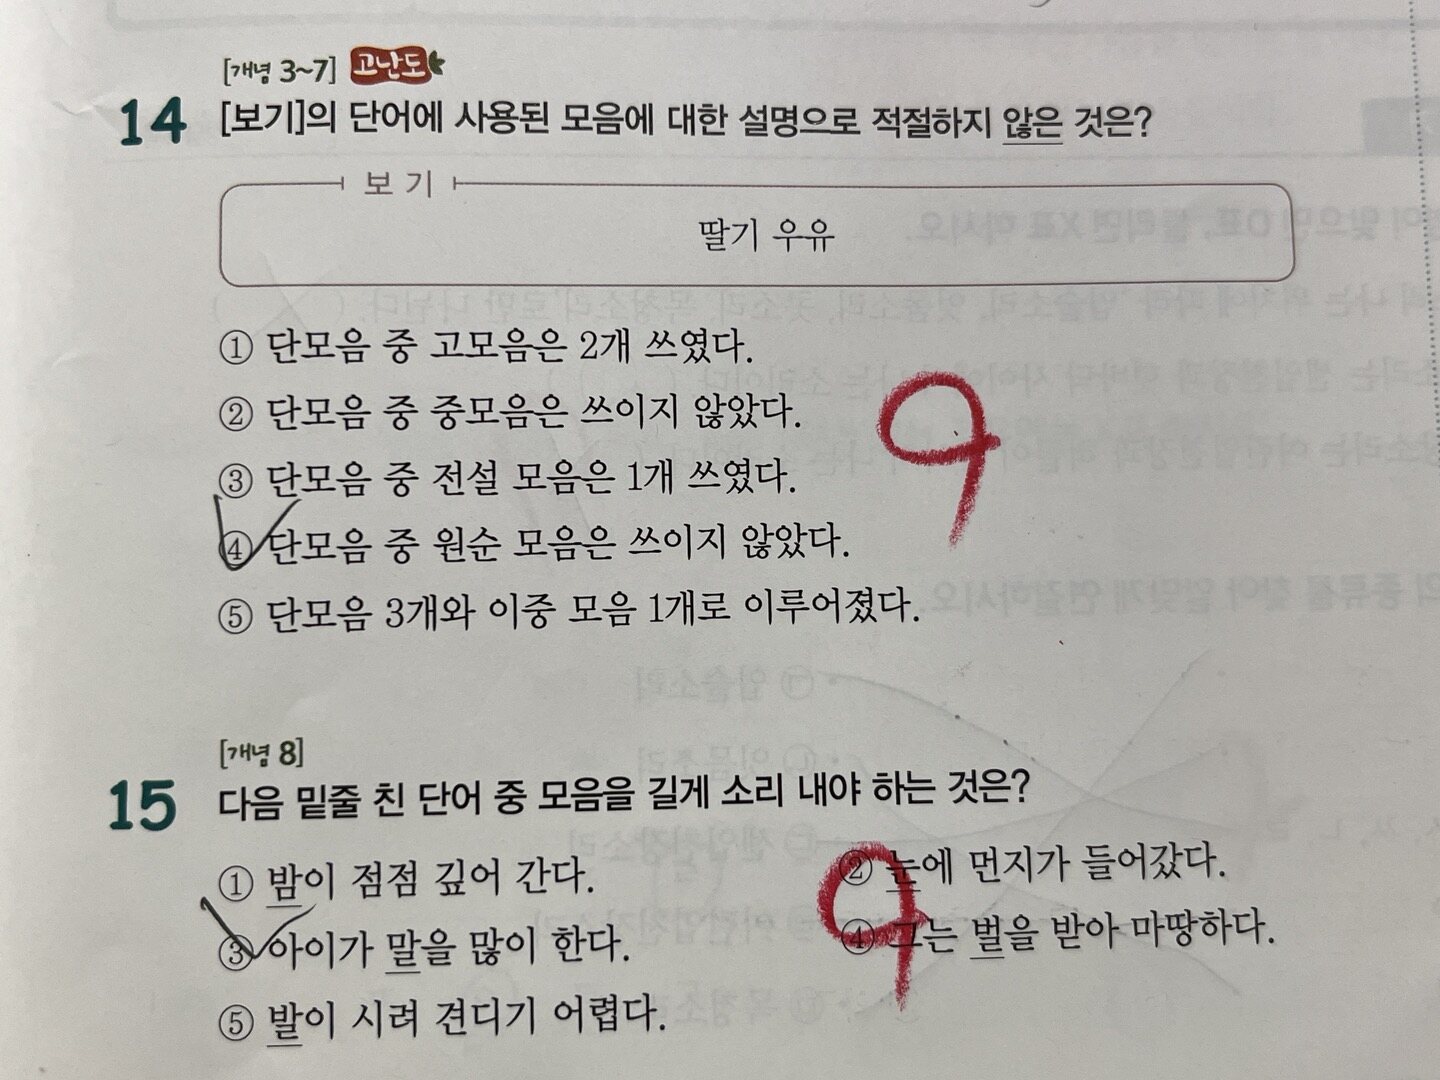 [개념 3~7] 고난도
14 [보기]의 단어에 사용된 모음에 대한 설명으로 적절하지 않은 것은?
보기
딸기 우유
① 단모음 중 고모음은 2개 쓰였다.
② 단모음 중 중모음은 쓰이지 않았다.
③ 단모음 중 전설 모음은 1개 쓰였다.
④ 단모음 중 원순 모음은 쓰이지 않았다.
⑤ 단모음 3개와 이중 모음 1개로 이루어졌다.
[개념 8]
15 다음 밑줄 친 단어 중 모음을 길게 소리 내야 하는 것은?
① 밤이 점점 깊어 간다.
② 눈에 먼지가 들어갔다.
③ 아이가 말을 많이 한다.
④ 그는 벌을 받아 마땅하다.
⑤ 발이 시려 견디기 어렵다.